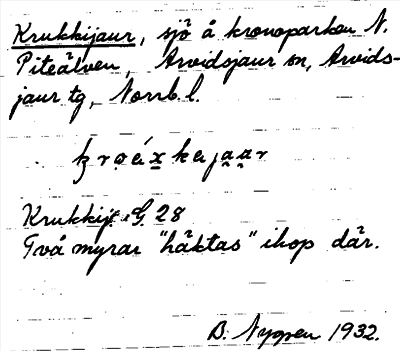 Krukkijaur, sjö å kronoparken N.
Piteälven, Arvidsjaur sn, Arvids-
jaur tg, Norrb. l.
Krukkij. G 28
Två myrar "häktas" ihop där.
B. Nygren 1932.